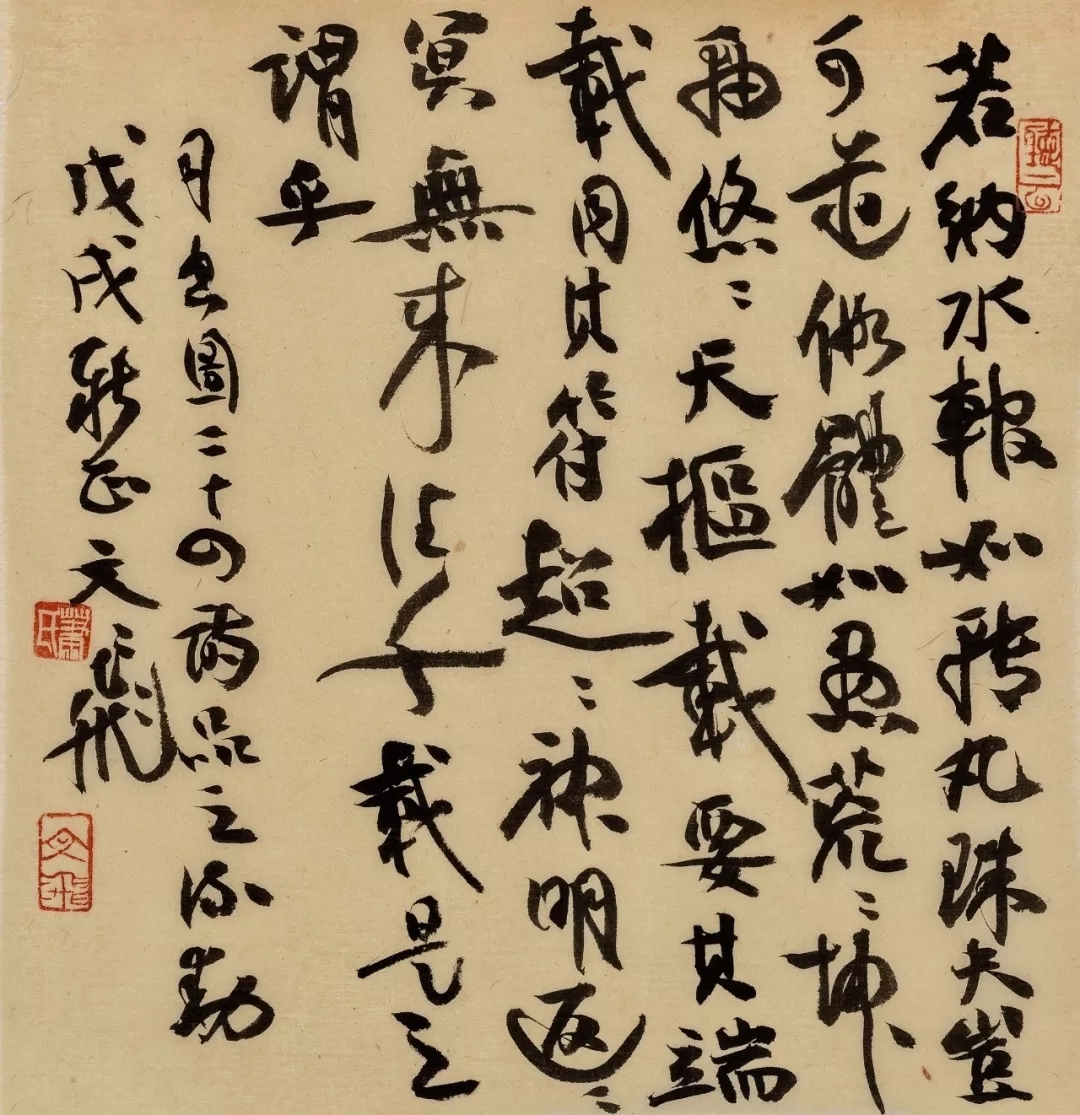 若納水輨如轉丸珠夫豈
可道假體如愚荒〻坤
軸悠〻天樞載要其端
載同其符超〻神明返〻
冥無來往千載是之
謂乎
司空圖二十四詩品之流動
戊戌新正文飛
蕭氏
文飛